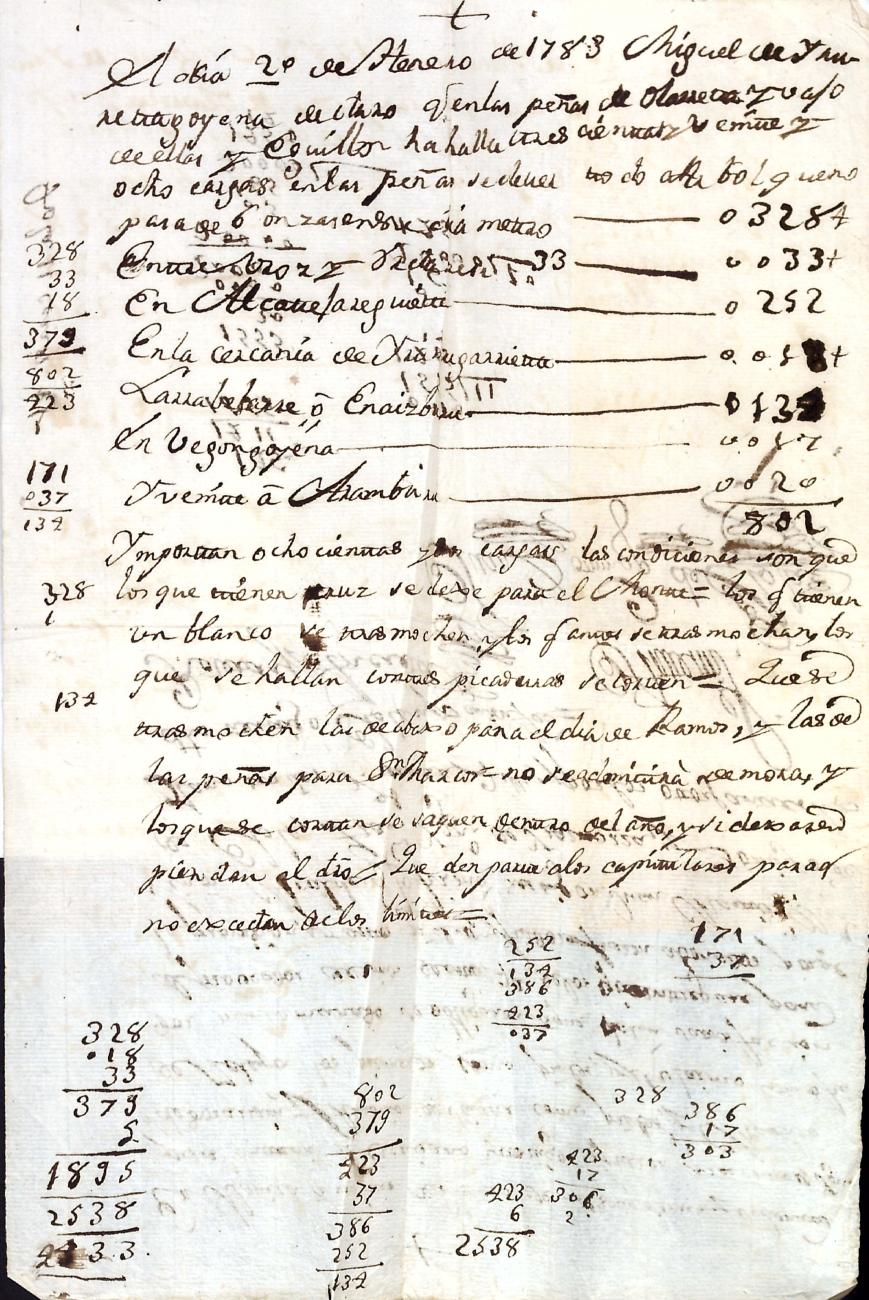 El dia 2º de Henero de 1783 Miguel de Yru-
retagoyena declaro q en las peñas de Olarreta y vajo
de ellas y ha halla tres cientas y veinte y
ocho cargas en las peñas se deve arbol q no
pasa de 6 onzas 0328+
Entre y 33 0033+
En 0252
En la cercania de 0018+
ō 0134
En Vegongoyena 0017
Y veinte a Aramburu 0020
802
Ymportan ocho cientas y dos cargas las condiciones son que
los que tienen cruz se dexe para el Monte = los q tienen
un blanco se trasmochen y los q antes se trasmochan, y los
que se hallan con tres picaduras se corten = Que se
trasmochen las de abaxo para el dia de Ramos, y las de
las peñas para Sn Marcos = no se admitirà demora, y
los que se cortan se saquen dentro del año, y si dexaren
pierdan el dro = Que den parte a los capitulares para q
no excedan de los limites =
328
33
18
379
802
423
171
037
134
328
1
134
252
134
386
423
037
171
37
328
018
33
379
5
1895
2538
2433
802
379
423
37
386
252
134
328
386
17
303
423
17
306
2
423
6
2538